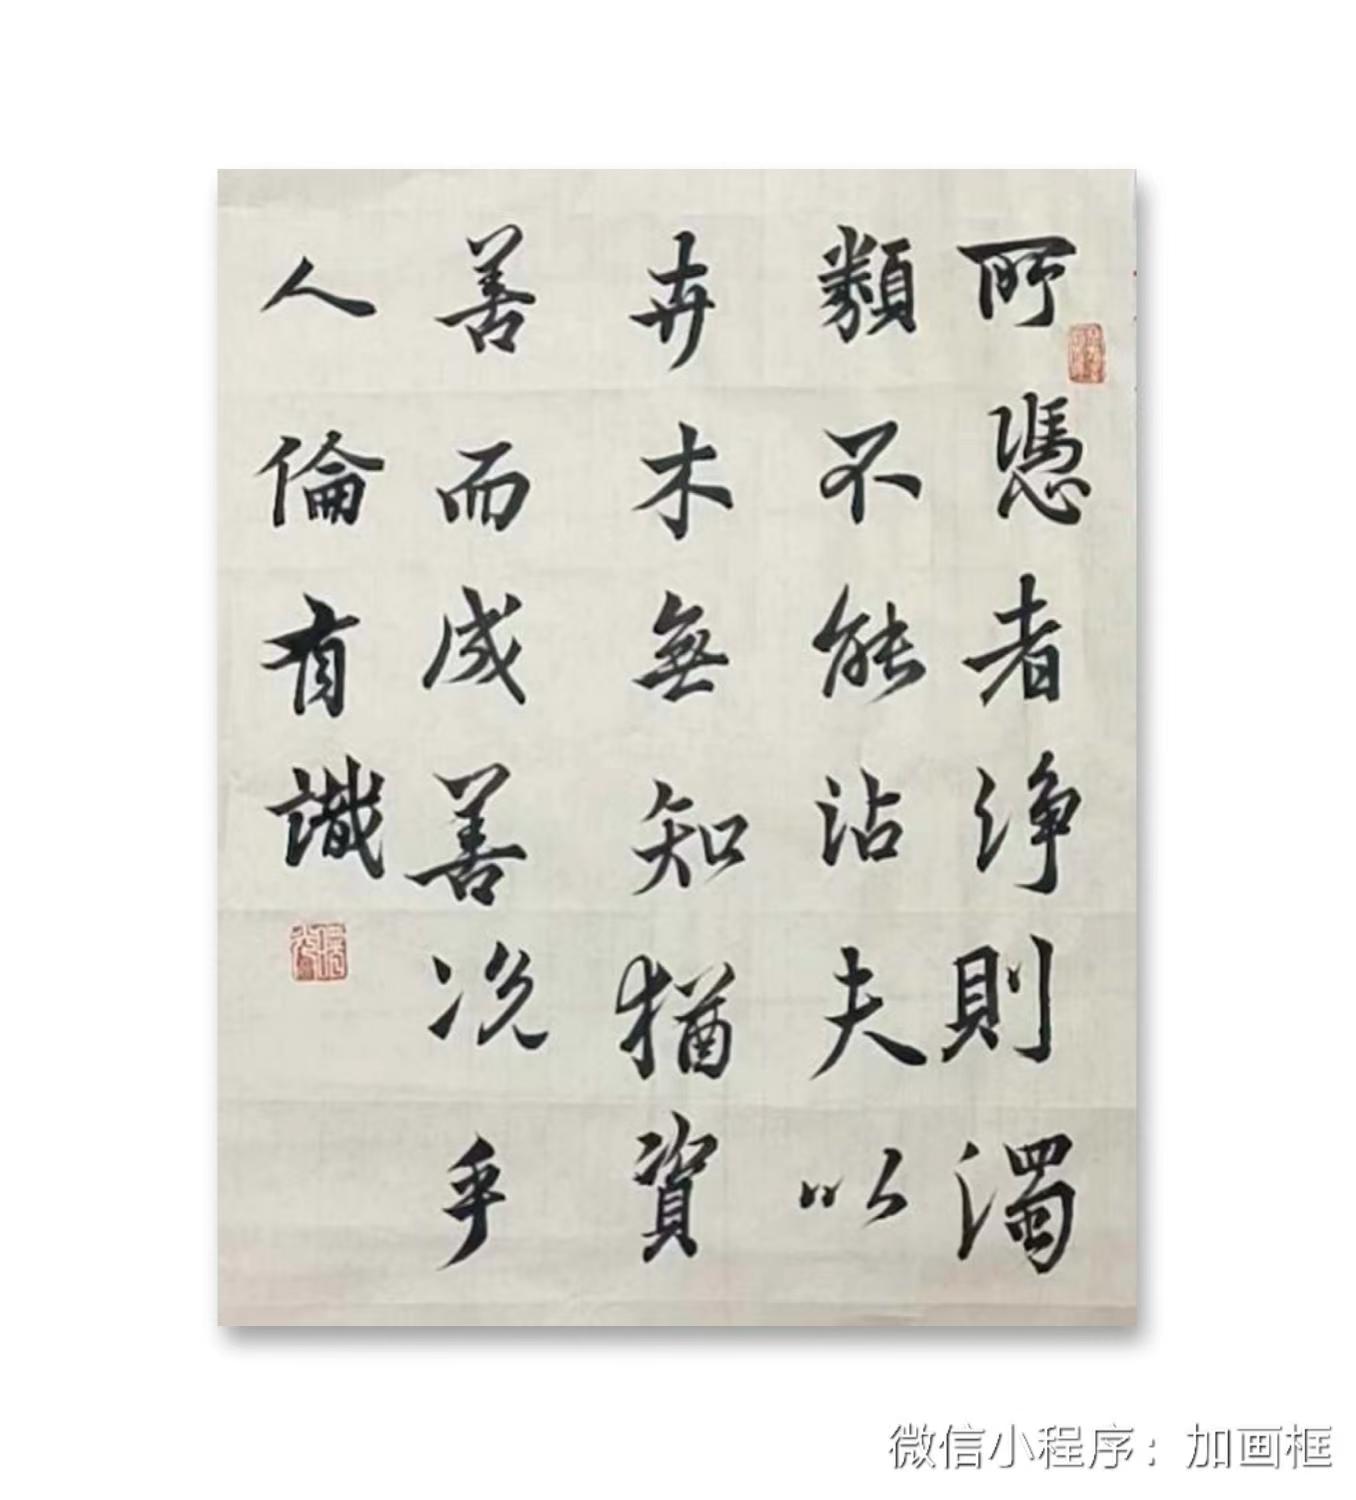 所憑者淨則濁
類不能沾夫以
卉木無知猶資
善而成善況乎
人倫有識
微信小程序：加画框